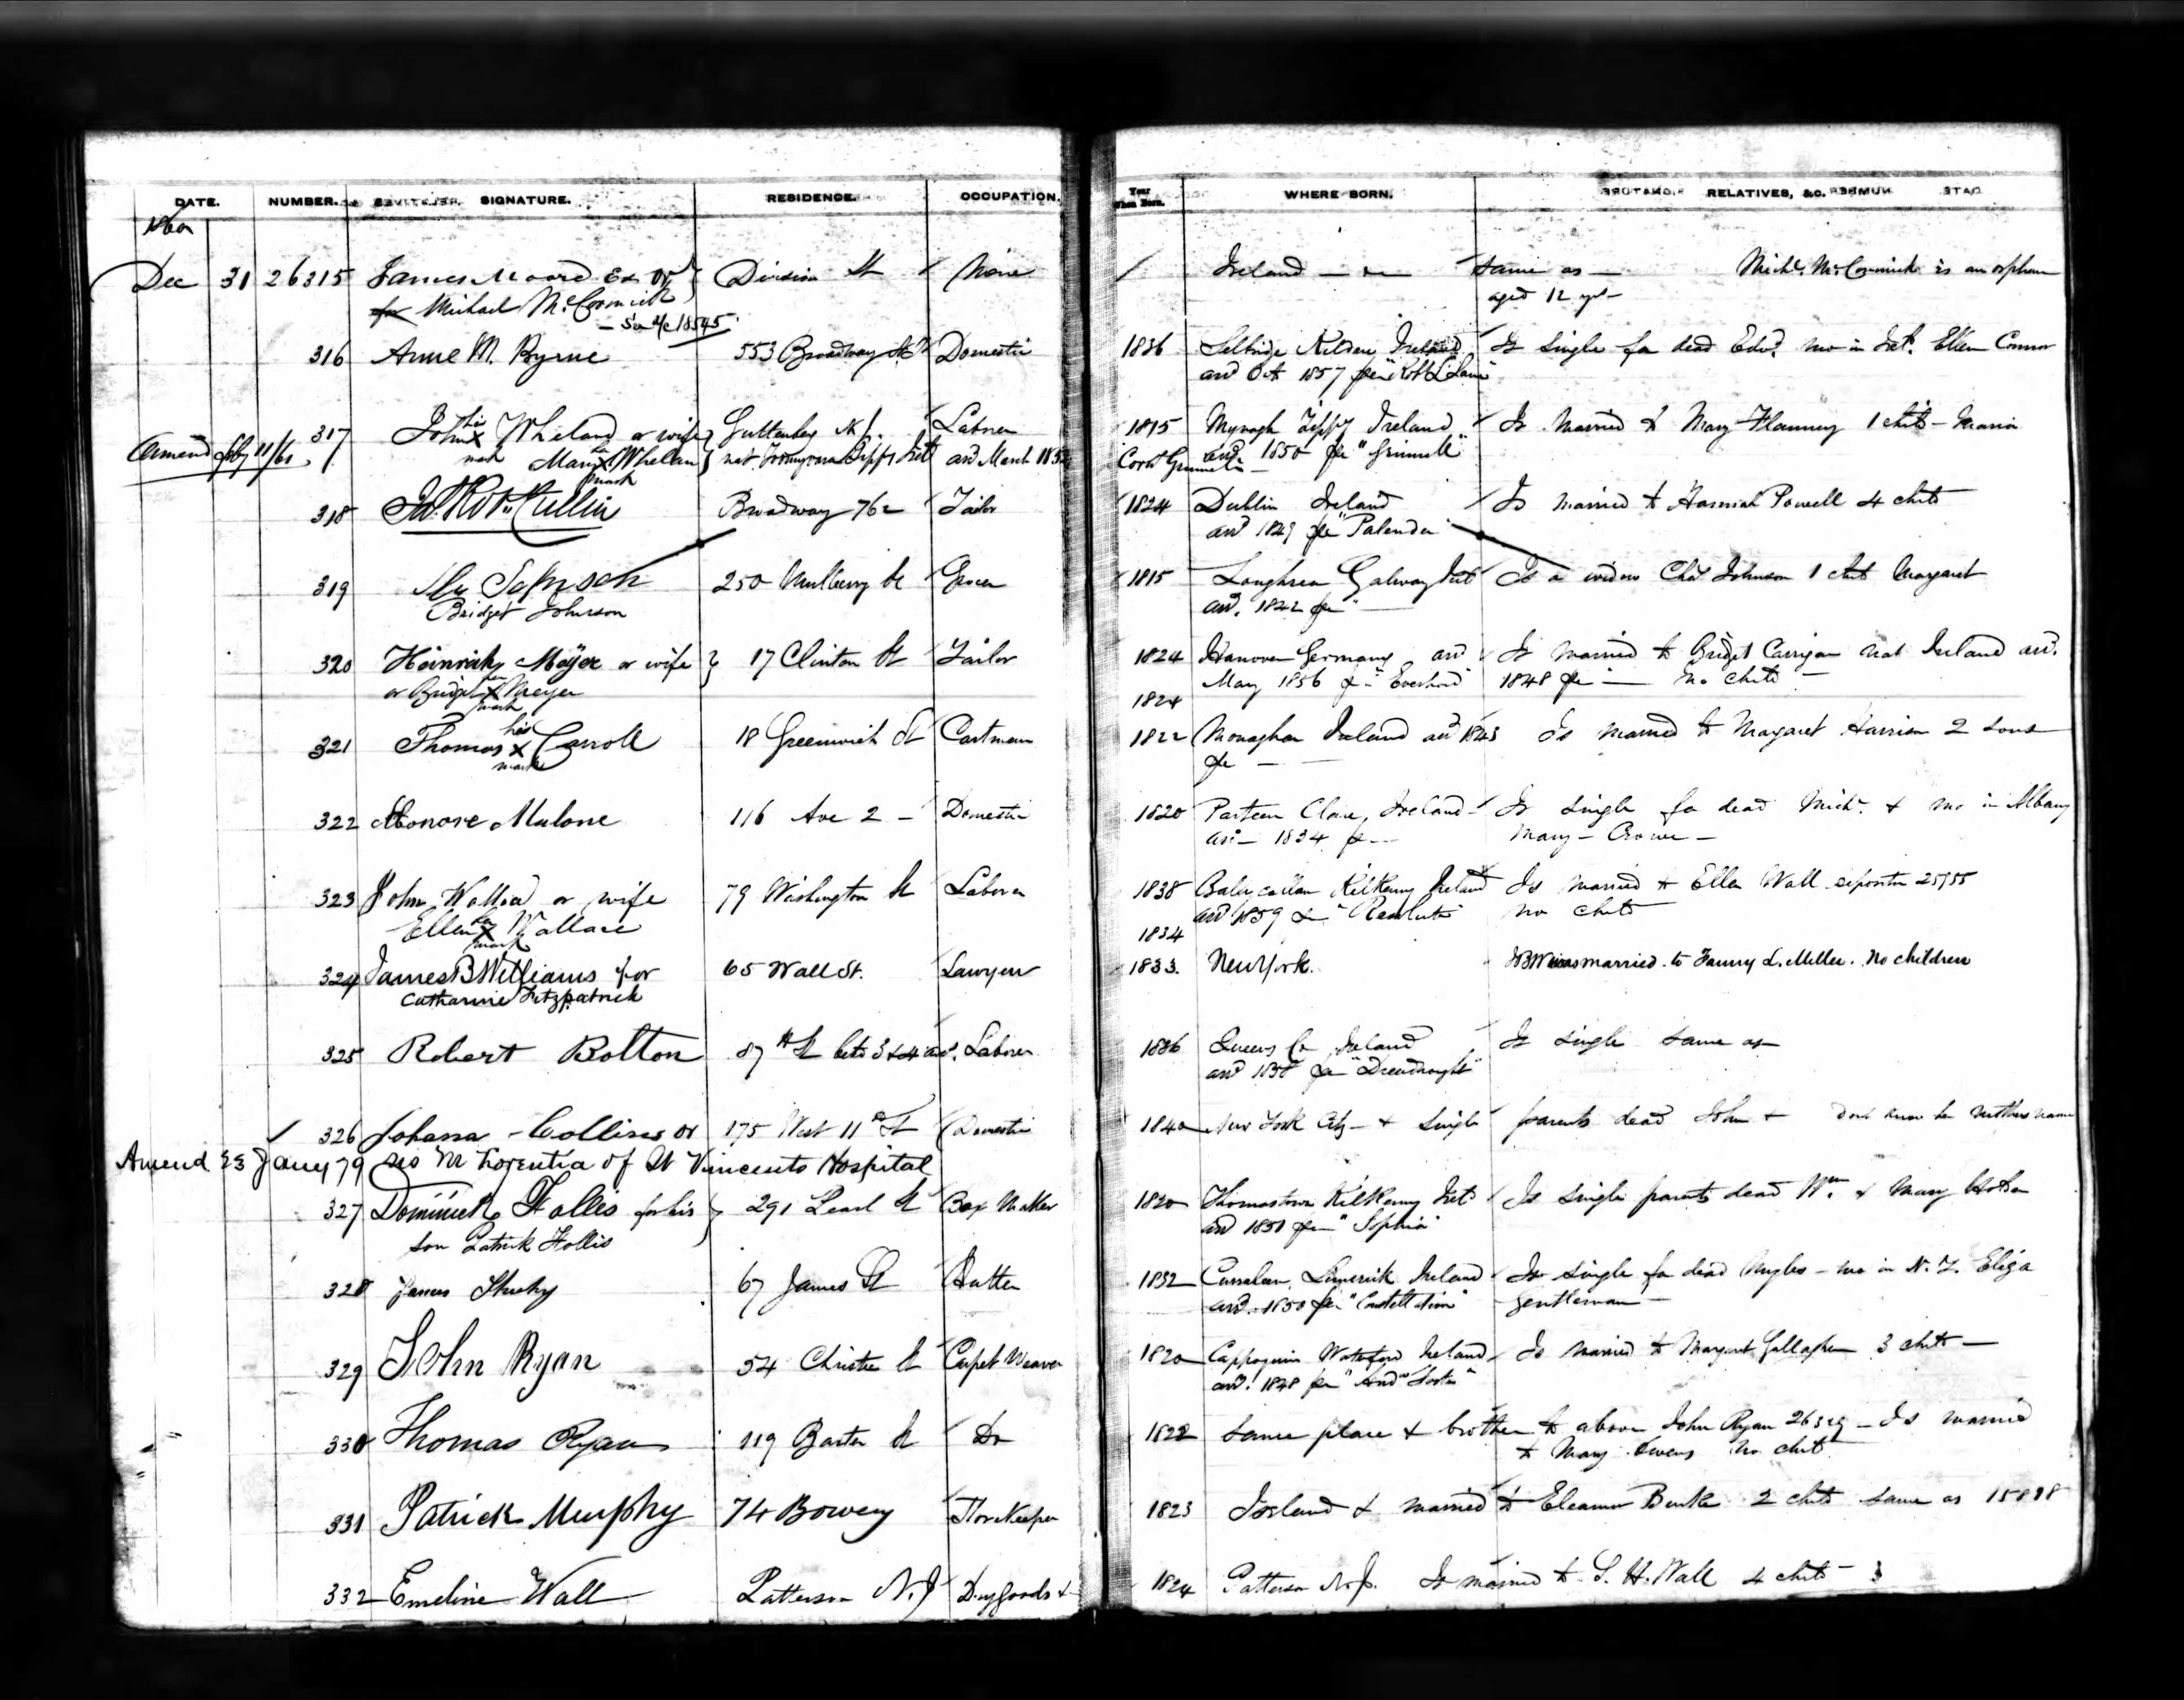 DATE. NUMBER. SIGNATURE. RESIDENCE. OCCUPATION. Year When Born. WHERE BORN. RELATIVES, &C.
1860
Dec 31 26315 James Moore Ex or Division St None Ireland same as Michl. McCormick is an orphan
for Michael McCormick aged 12 yrs
See a/c 18545
316 Anne M. Byrne 553 Broadway Domestic 1836 Kildare Ireland Is single fa dead Edwd. mo in Ird. Ellen Connor
arrd Oct 1857 per
317 John his x mark Whelan or wife Guttenberg N J. Laborer 1815 Tippy Ireland Is married to Mary Flannery 1 child - Maria
Amend Feby 11/61 Mary her x mark Whelan nat Tippy Ird arrd March 185 arrd 1850 per "Grinnell"
318 Cullin Broadway 762 Tailor 1824 Dublin Ireland Is married to Hannah Powell 4 chds
arrd 1849 per
319 Johnson 250 Mulberry St Grocer 1815 Loughrea Galway Ird Is a widow Chas Johnson 1 chd Margaret
Bridget Johnson arrd. 1842 per
320 Heinrich Meyer or wife 17 Clinton St Tailor 1824 Hanover Germany arrd Is married to Bridget Carrigan nat Ireland arrd.
or Bridget her x mark Meyer May 1856 1848 per — no chds
1824
321 Thomas his x mark Carroll 18 Greenwich St Cartman 1822 Monaghan Ireland arrd 1843 Is married to Margaret Harrison 2 sons
per —
322 Honore Malone 116 Ave 2 Domestic 1820 Parteen Clare, Ireland Is single fa dead Michl. & mo in Albany
arrd 1834 per Mary - Crowe -
323 John Wallace or wife 79 Washington St Laborer 1838 Kilkenny Ireland Is married to Ellen Wall depositor 25755
Ellen her x mark Wallace arrd 1859 per "Resolute" no chds
1834
324 James B Williams for 65 Wall St. Lawyer 1833. New York. JBW was married to Fanny L. Miller. No children
Catharine Fitzpatrick
325 Robert Bolton 87th St betn 3 & 4 av. Laborer 1836 Queens Co Ireland Is single same as
arrd 1858 per "Dreadnought"
326 Johana Collins or 175 West 11th St Domestic 1840 New York City & single parents dead John & dont know her mothers name
Amend 23 Jany 79 of St Vincents Hospital
327 Dominick Follis for his 291 Pearl St Box Maker 1820 Thomastown Kilkenny Ird Is single parents dead Wm. & Mary
son Patrick Follis arrd 1851 per "Sophia"
328 James Sheehy 67 James St Hatter 1832 Limerick Ireland Is single fa dead Myles - mo in N. Y. Eliza
arrd. 1850 per "Constellation" Gentleman
329 John Ryan 54 Christie St Carpet Weaver 1820 Cappoquin Waterford Ireland Is married to Margaret Gallagher 3 chds
arrd. 1848 per
330 Thomas Ryan 119 Baxter St Do 1822 Same place & brother to above John Ryan 26329 - Is married
to Mary Owens no chd
331 Patrick Murphy 74 Bowery Storekeeper 1823 Ireland & married to Eleanor Burke 2 chds same as 15898
332 Emeline Wall Patterson N. J Drygoods & 1824 Patterson N. J. Is married to S. H. Wall 4 chds